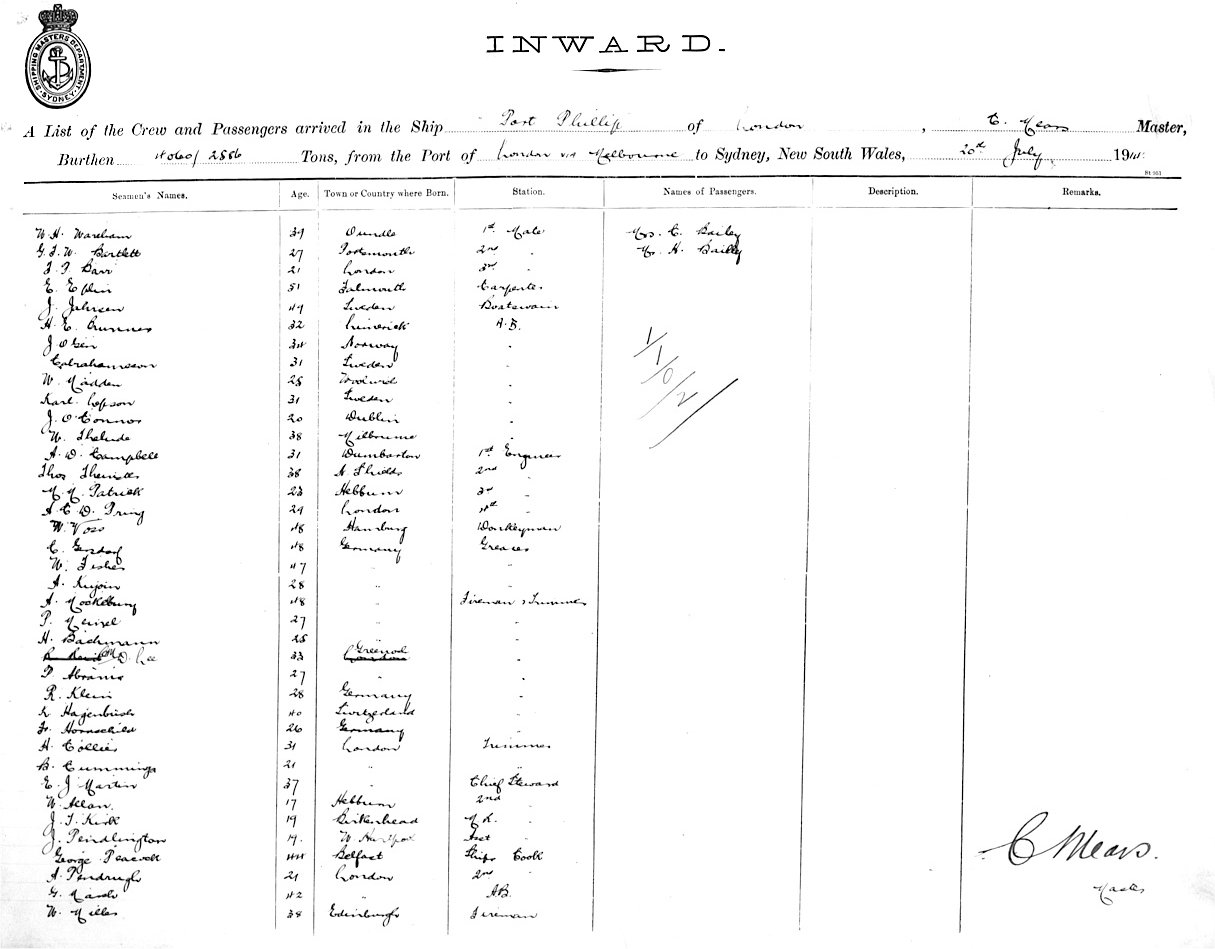 SHIPPING MASTERS DEPARTMENT SYDNEY
INWARD.
A List of the Crew and Passengers arrived in the Ship Port Phillip of London, C. Mears Master,
Burthen 4060/2886 Tons, from the Port of London via Melbourne to Sydney, New South Wales, 20th July 19
Seamen's Names. Age. Town or Country where Born. Station. Names of Passengers. Description. Remarks.
W. H. Wareham 39 Oundle 1st Mate Mrs. C. Bailey
G. F. W. Bartlett 27 Portsmouth 2nd " H. Bailey
Barr 21 London 3rd "
E. 51 Falmouth Carpenter
J. Johnsen 49 Sweden Boatswain
H. E. 32 Limerick A.B.
J. Olsen 34 Norway "
C Abrahamsson 31 Sweden "
W. Madden 25 "
Karl 31 Sweden "
J. O'Connor 20 Dublin "
W. 38 Melbourne "
A. D. Campbell 31 Dumbarton 1st Engineer
Thos. 38 N. Shields 2nd "
Patrick 23 Hebburn 3rd "
A. C. D. Pring 29 London 4th "
W. Voss 48 Hamburg Donkeyman
C. 48 Germany Greaser
W. Fisher 47 " "
A. 28 " "
A. 48 " Fireman & Trimmer
P. 27 " "
H. Bachmann 25 " "
D. Lee 33 London "
P. Abrams 27 " "
R. Klein 28 Germany "
Hagenbüch 40 Switzerland "
Hornschild 26 Germany "
H. Collier 31 London Trimmer
B. Cummings 21 " "
E. J. Martin 37 " Chief Steward
W. Allan. 17 Hebburn 2nd "
J. T. Kirk 19 Birkenhead M. R. "
J. 19. W. Hartlpool Asst "
George Peacock 44 Belfast Ships Cook
A. 21 London 2nd "
G. 42 " AB.
W. Miller 38 Edinburgh Fireman
1/1/0/2/
C Mears.
Master